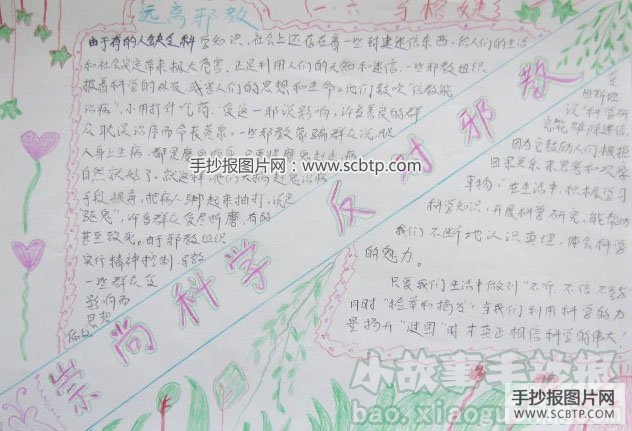 远离邪教
一.六
由于有的人缺乏科学知识，社会上还存在着一些封建迷信东西，给人们的生活
和社会安定带来极大危害，还是利用人们的无知和迷信，一些邪教组织
披着科学的外衣，残害人们的思想和生命。他们鼓吹"信教能
治病"，不用打针吃药，受这一邪说影响，许多善良的群
众耽误治疗而命丧黄泉。一些邪教蒙骗群众说，
人身上生病，都是
自然就好了，就这样，他们
手段狠毒，把病人绑起来抽打，说是
驱鬼"，许多群众受尽折磨，有的
甚至致死。由于邪教组织
实行精神控制，导致
一些群众受
影响而
崇尚科学 反对邪教
说"科学研
究能破除迷信，
因为它鼓励人们根据
因果关系来思考和观察
事物，在生活中，积极学习
科学知识，开展科学研究，能帮助
我们不断地认识真理，体会科学
的魅力。
只要我们生活中做到"不听、不信、不
同时"检举和揭发，当我们利用科学的力
量揭开"谜团"时，才真正相信科学的伟大！
手抄报图片网：www.scbtp.com
小故事手抄报
bao.xiaogu
手抄报图片网
WWW.SCBTP.COM